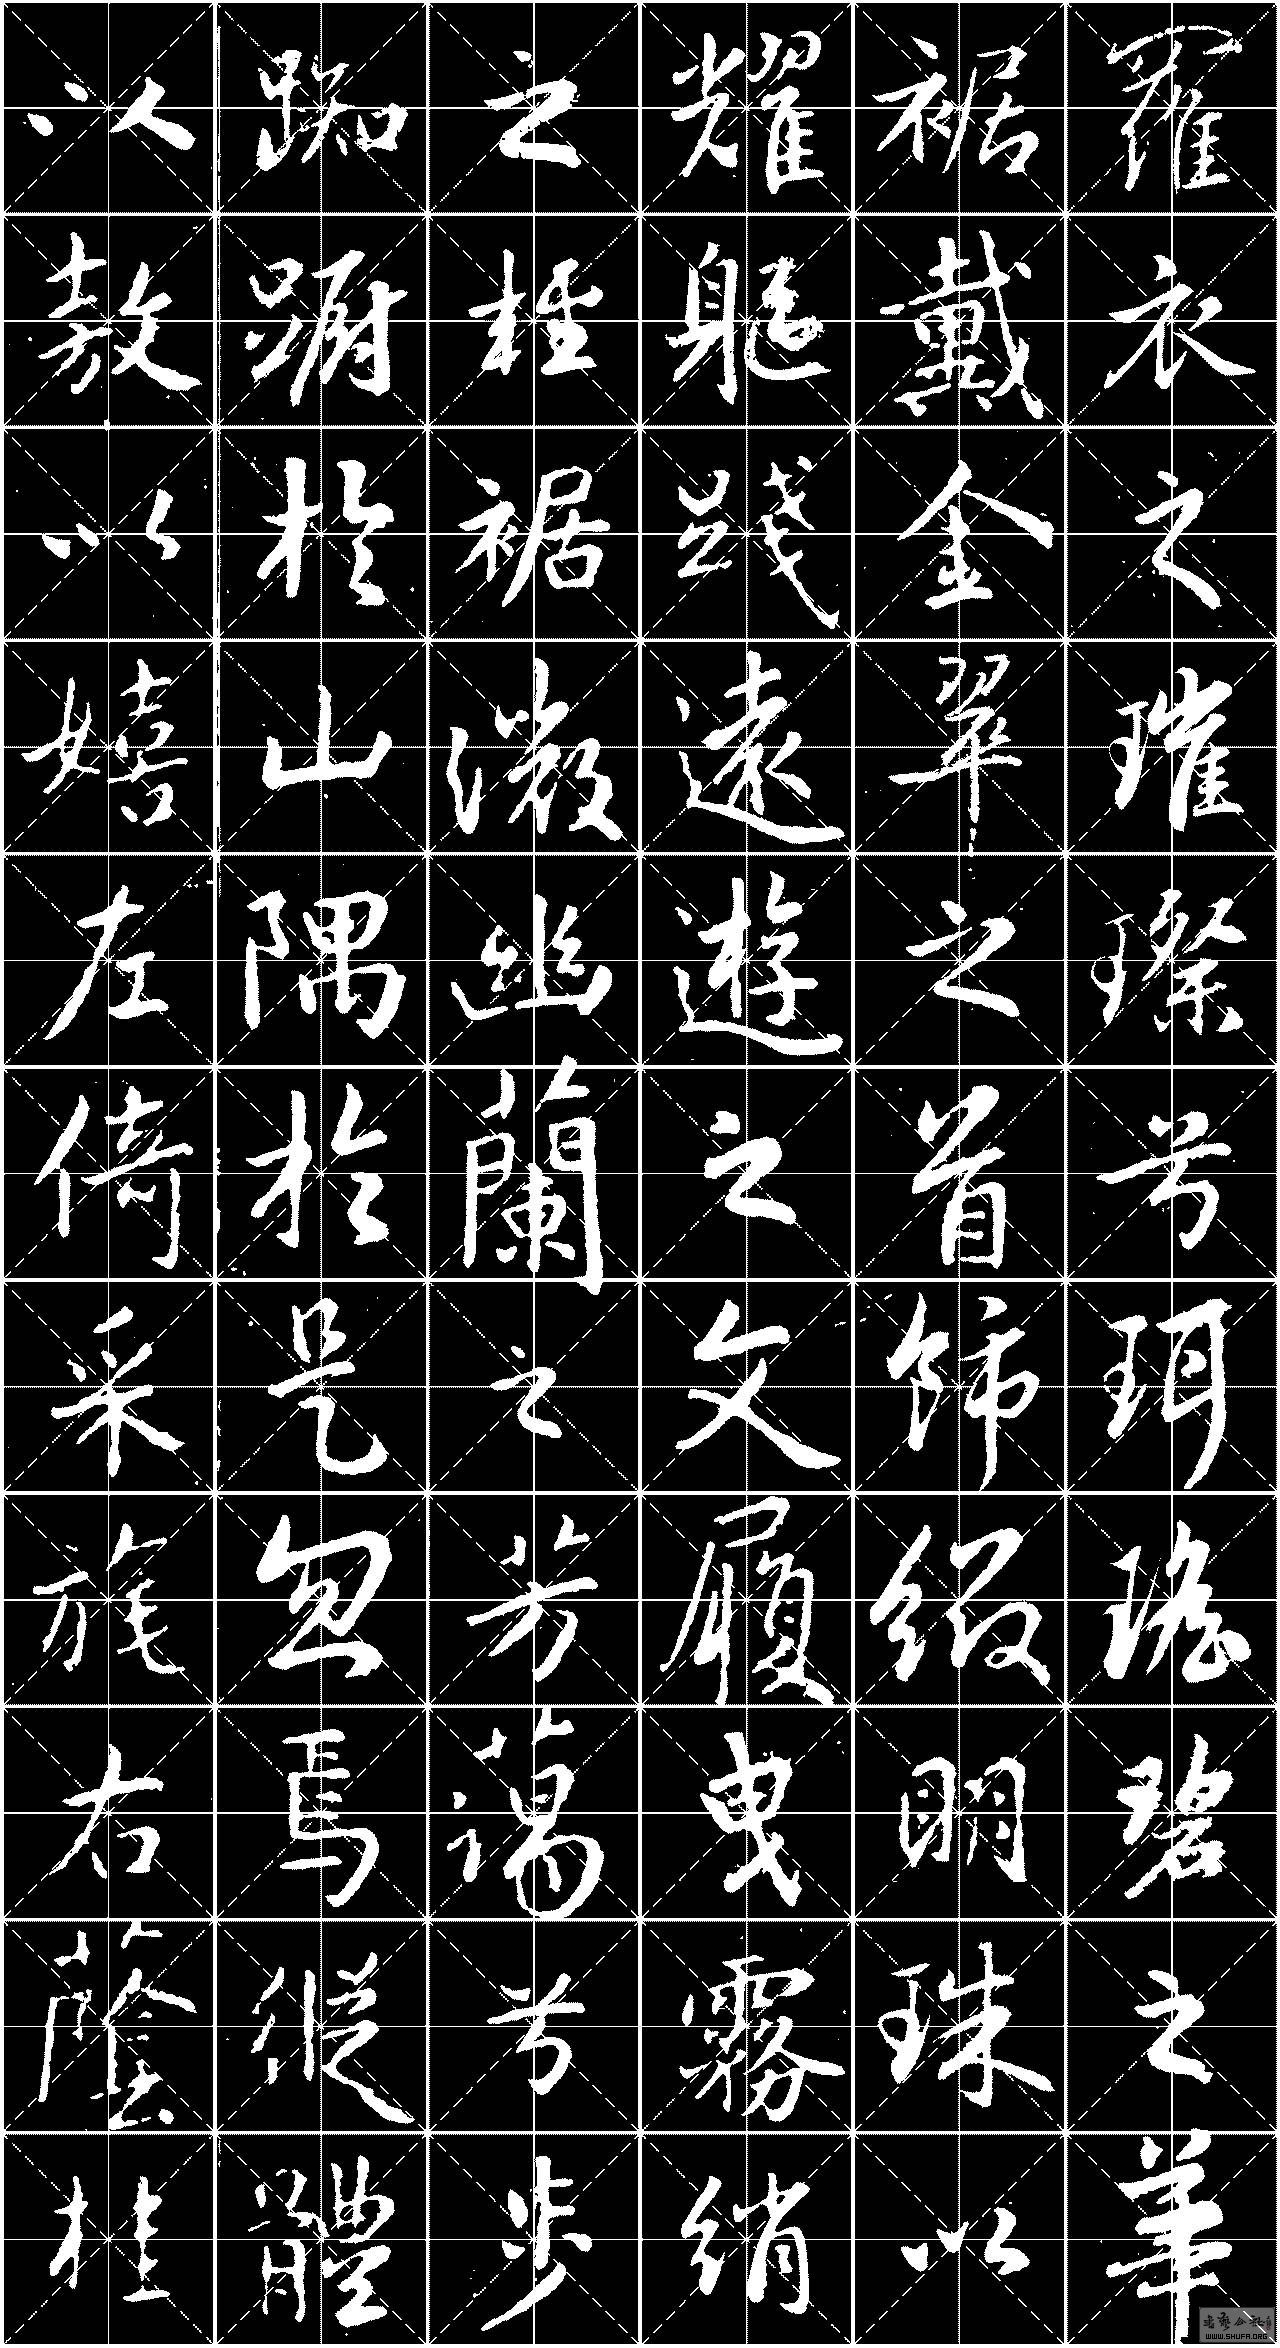 羅衣之璀璨兮珥瑤碧之華
裾戴金翠之首飾綴明珠以
耀軀踐遠遊之文履曳霧綃
之輕裾微幽蘭之芳藹兮步
踟躕於山隅於是忽焉縱體
以敖以嬉左倚采旄右蔭桂
WWW.SHUFA.ORG